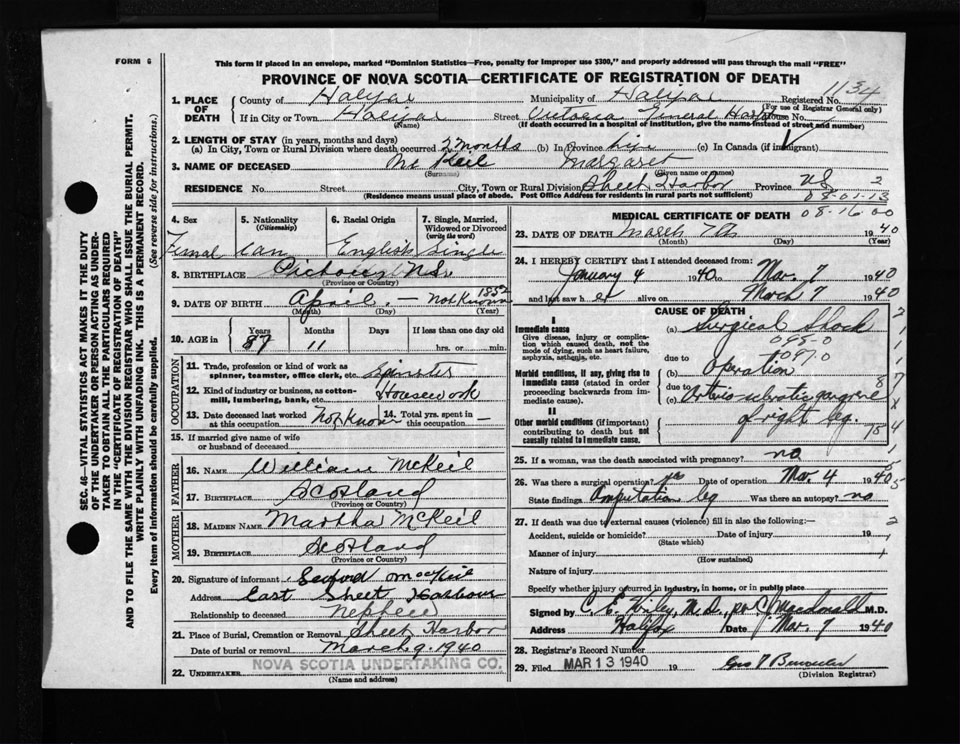 FORM 6
This form if placed in an envelope, marked "Dominion Statistics—Free, penalty for improper use $300," and properly addressed will pass through the mail "FREE"
PROVINCE OF NOVA SCOTIA—CERTIFICATE OF REGISTRATION OF DEATH
SEC. 46—VITAL STATISTICS ACT MAKES IT THE DUTY
OF THE UNDERTAKER OR PERSON ACTING AS UNDER-
TAKER TO OBTAIN ALL THE PARTICULARS REQUIRED
IN THE "CERTIFICATE OF REGISTRATION OF DEATH"
AND TO FILE THE SAME WITH THE DIVISION REGISTRAR WHO SHALL ISSUE THE BURIAL PERMIT.
WRITE PLAINLY WITH UNFADING INK. THIS IS A PERMANENT RECORD.
Every item of information should be carefully supplied. (See reverse side for instructions.)
1. PLACE OF DEATH County of Halifax Municipality of Halifax Registered No. 1134
(For use of Registrar General only)
If in City or Town Halifax Street Victoria General Hospt House No.
(Name) (If death occurred in a hospital or institution, give the name instead of street and number)
2. LENGTH OF STAY (in years, months and days)
(a) In City, Town or Rural Division where death occurred 2 months (b) In Province life (c) In Canada (if immigrant)
3. NAME OF DECEASED McKeil Margaret
(Surname) (Given name or names)
RESIDENCE No. Street City, Town or Rural Division Sheet Harbor Province NS 2
(Residence means usual place of abode. Post Office Address for residents in rural parts not sufficient) 08-01-13
4. Sex 5. Nationality (Citizenship) 6. Racial Origin 7. Single, Married, Widowed or Divorced (write the word)
Femal Can English Single
8. BIRTHPLACE Pictou NS.
(Province or Country)
9. DATE OF BIRTH April — Not Known 1852
(Month) (Day) (Year)
10. AGE in Years Months Days If less than one day old
87 11 hrs. or min.
OCCUPATION
11. Trade, profession or kind of work as spinner, teamster, office clerk, etc. Spinster
12. Kind of industry or business, as cotton-mill, lumbering, bank, etc. Housework
13. Date deceased last worked at this occupation Not Known 14. Total yrs. spent in this occupation —
15. If married give name of wife or husband of deceased
FATHER
16. NAME William McKeil
17. BIRTHPLACE Scotland
(Province or Country)
MOTHER
18. MAIDEN NAME Martha McKeil
19. BIRTHPLACE Scotland
(Province or Country)
20. Signature of informant
Address East Sheet Harbour
Relationship to deceased Nephew
21. Place of Burial, Cremation or Removal Sheet Harbor
Date of burial or removal March 9. 1940
22. UNDERTAKER NOVA SCOTIA UNDERTAKING CO.
(Name and address)
MEDICAL CERTIFICATE OF DEATH 08-16-00
23. DATE OF DEATH March 7th 1940
(Month) (Day) (Year)
24. I HEREBY CERTIFY that I attended deceased from:
January 4 1940 to Mar. 7 1940
and last saw h er alive on March 7 1940
CAUSE OF DEATH
I
Immediate cause
Give disease, injury or complication which caused death, not the mode of dying, such as heart failure, asphyxia, asthenia, etc.
(a) Surgical Shock
due to
Morbid conditions, if any, giving rise to immediate cause (stated in order proceeding backwards from immediate cause).
(b) Operation
due to
(c) Arterio-sclerotic gangrene
of right leg.
II
Other morbid conditions (if important) contributing to death but not causally related to immediate cause.
25. If a woman, was the death associated with pregnancy? no
26. Was there a surgical operation? yes Date of operation Mar. 4 1940
State findings Amputation leg Was there an autopsy? no
27. If death was due to external causes (violence) fill in also the following:—
Accident, suicide or homicide? Date of injury 19
(State which)
Manner of injury
(How sustained)
Nature of injury
Specify whether injury occurred in industry, in home, or in public place
Signed by M.D., Macdonald M.D.
Address Halifax Date Mar. 7 1940
28. Registrar's Record Number
29. Filed MAR 13 1940 19
(Division Registrar)